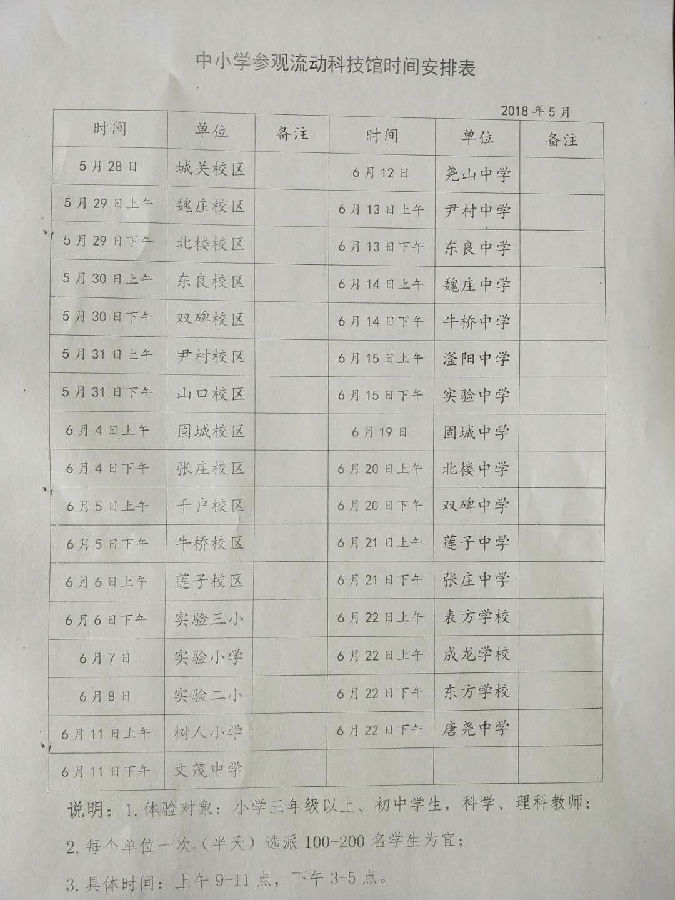 中小学参观流动科技馆时间安排表
2018年5月
时间 单位 备注 时间 单位 备注
5月28日 城关校区 6月12日 尧山中学
5月29日上午 魏庄校区 6月13日上午 尹村中学
5月29日下午 北楼校区 6月13日下午 东良中学
5月30日上午 东良校区 6月14日上午 魏庄中学
5月30日下午 双碑校区 6月14日下午 牛桥中学
5月31日上午 尹村校区 6月15日上午 滏阳中学
5月31日下午 山口校区 6月15日下午 实验中学
6月4日上午 固城校区 6月19日 固城中学
6月4日下午 张庄校区 6月20日上午 北楼中学
6月5日上午 千户校区 6月20日下午 双碑中学
6月5日下午 牛桥校区 6月21日上午 莲子中学
6月6日上午 莲子校区 6月21日下午 张庄中学
6月6日下午 实验三小 6月22日上午 表方学校
6月7日 实验小学 6月22日上午 成龙学校
6月8日 实验二小 6月22日下午 东方学校
6月11日上午 树人小学 6月22日下午 唐尧中学
6月11日下午 文茂中学
说明：1.体验对象：小学三年级以上、初中学生，科学、理科教师；
2.每个单位一次.（半天）选派100-200名学生为宜；
3.具体时间：上午9-11点，下午3-5点。